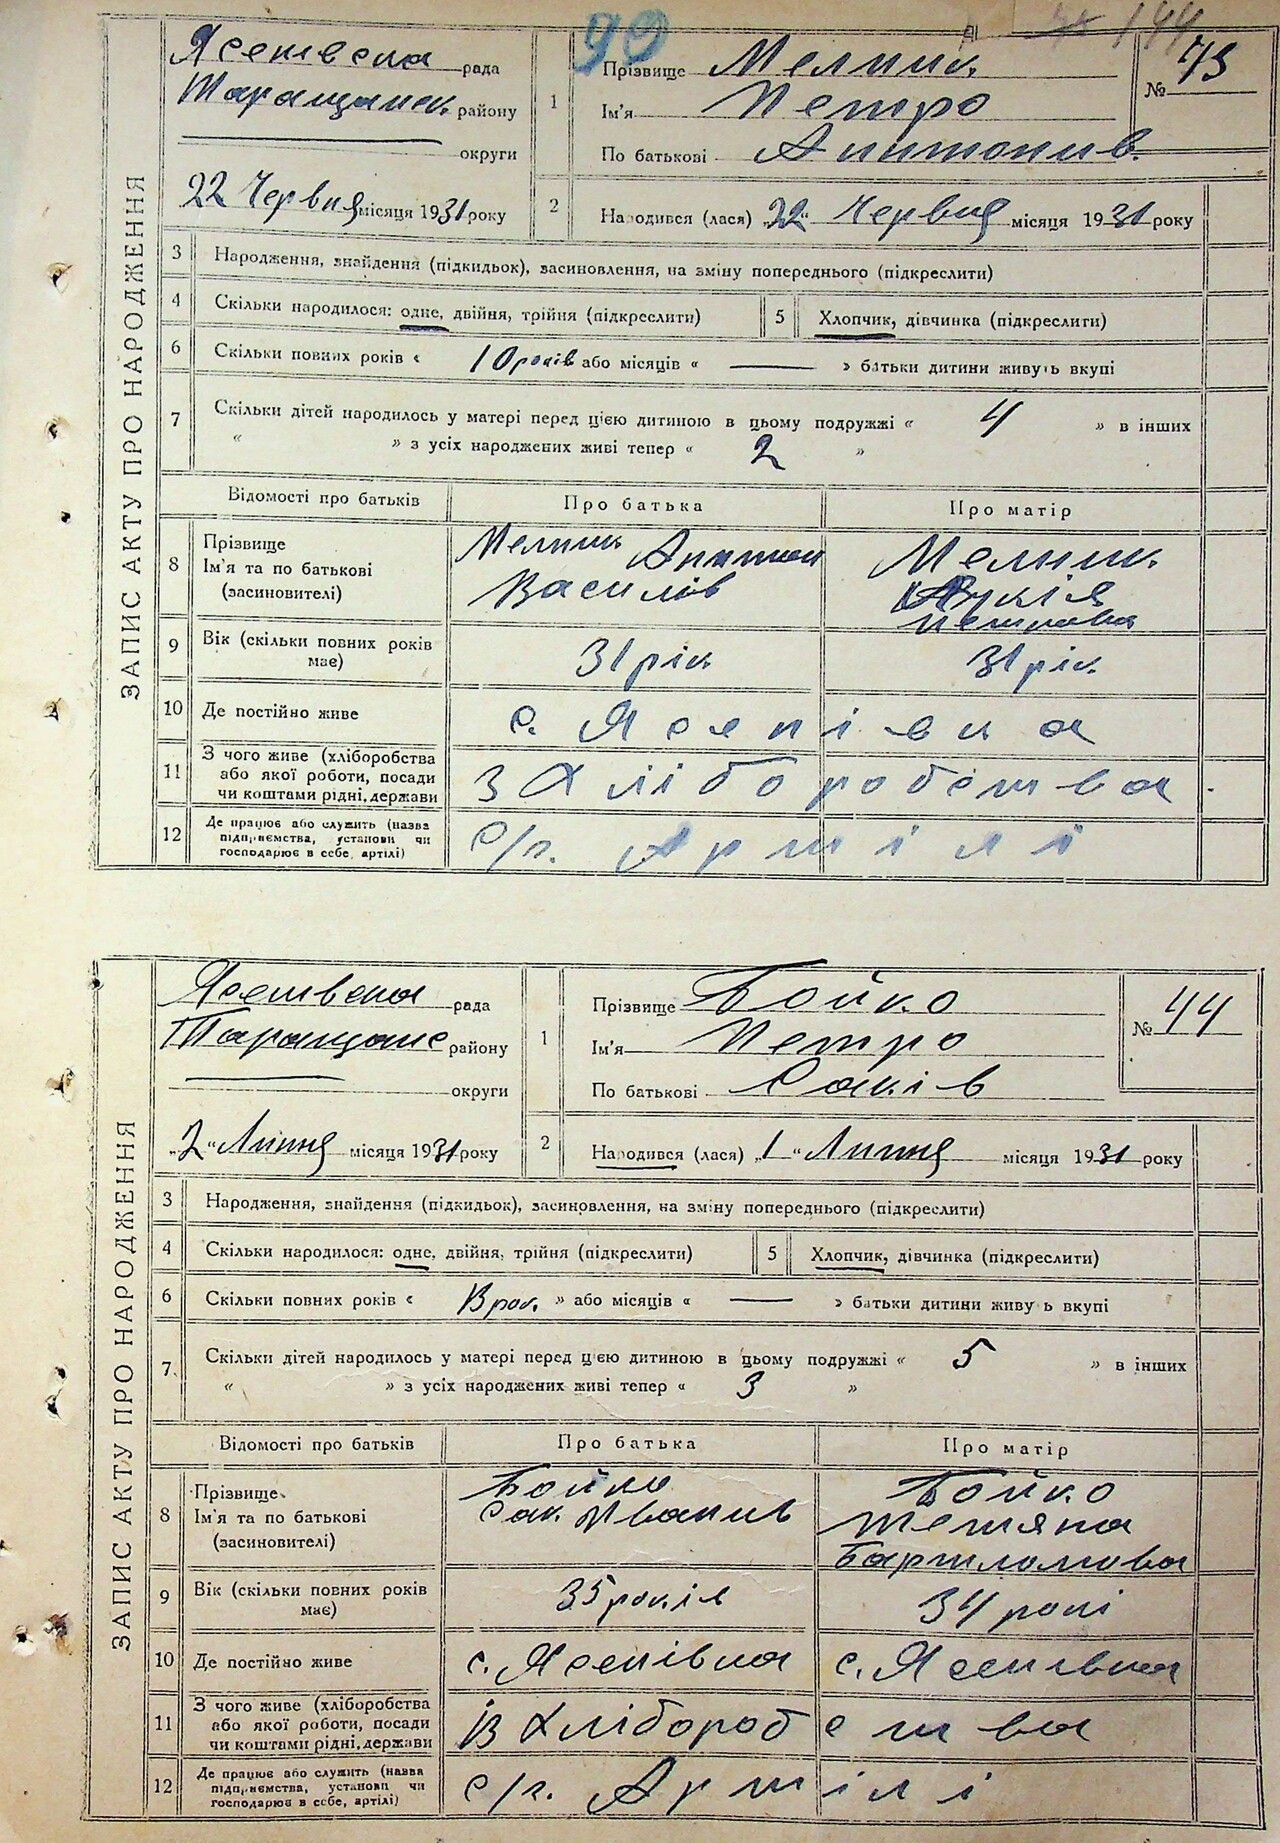 90
144
ЗАПИС АКТУ ПРО НАРОДЖЕННЯ
Ясенівська рада
Таращанськ. району
округи
22 Червня місяця 1931 року
1 Прізвище Мельник
Ім'я Петро
По батькові Антонив.
№ 43
2 Народився (лася) „22“ Червня місяця 1931 року
3 Народження, знайдення (підкидьок), засиновлення, на зміну попереднього (підкреслити)
4 Скільки народилося: одне, двійня, трійня (підкреслити) 5 Хлопчик, дівчинка (підкреслити)
6 Скільки повних років « 10 років або місяців « — » батьки дитини живуть вкупі
7 Скільки дітей народилось у матері перед цією дитиною в цьому подружжі « 4 » в інших
« » з усіх народжених живі тепер « 2 »
Відомості про батьків Про батька Про матір
8 Прізвище Ім'я та по батькові (засиновителі)
Мельник Антон
Василів
Мельник
Петрова
9 Вік (скільки повних років має) 31 рік 31 рік
10 Де постійно живе с. Ясенівка
11 З чого живе (хліборобства або якої роботи, посади чи коштами рідні, держави З Хліборобства
12 Де працює або служить (назва підприємства, установи чи господарює в себе, артілі) С/г. Артілі
ЗАПИС АКТУ ПРО НАРОДЖЕННЯ
Ясенівська рада
Таращанс району
округи
„2“ Липня місяця 1931 року
1 Прізвище Бойко
Ім'я Петро
По батькові Саків
№ 44
2 Народився (лася) „1“ Липня місяця 1931 року
3 Народження, знайдення (підкидьок), засиновлення, на зміну попереднього (підкреслити)
4 Скільки народилося: одне, двійня, трійня (підкреслити) 5 Хлопчик, дівчинка (підкреслити)
6 Скільки повних років « 13 рок. » або місяців « — » батьки дитини живу ь вкупі
7 Скільки дітей народилось у матері перед цією дитиною в цьому подружжі « 5 » в інших
« » з усіх народжених живі тепер « 3 »
Відомості про батьків Про батька Про матір
8 Прізвище Ім'я та по батькові (засиновителі)
Бойко
Сак. Иванив
Бойко
Тетяна
Бартломова
9 Вік (скільки повних років має) 35 років 34 рокі
10 Де постійно живе с. Ясенівка с. Ясенівка
11 З чого живе (хліборобства або якої роботи, посади чи коштами рідні, держави Із Хліборобства
12 Де працює або служить (назва підприємства, установи чи господарює в себе, артілі) С/г. Артілі